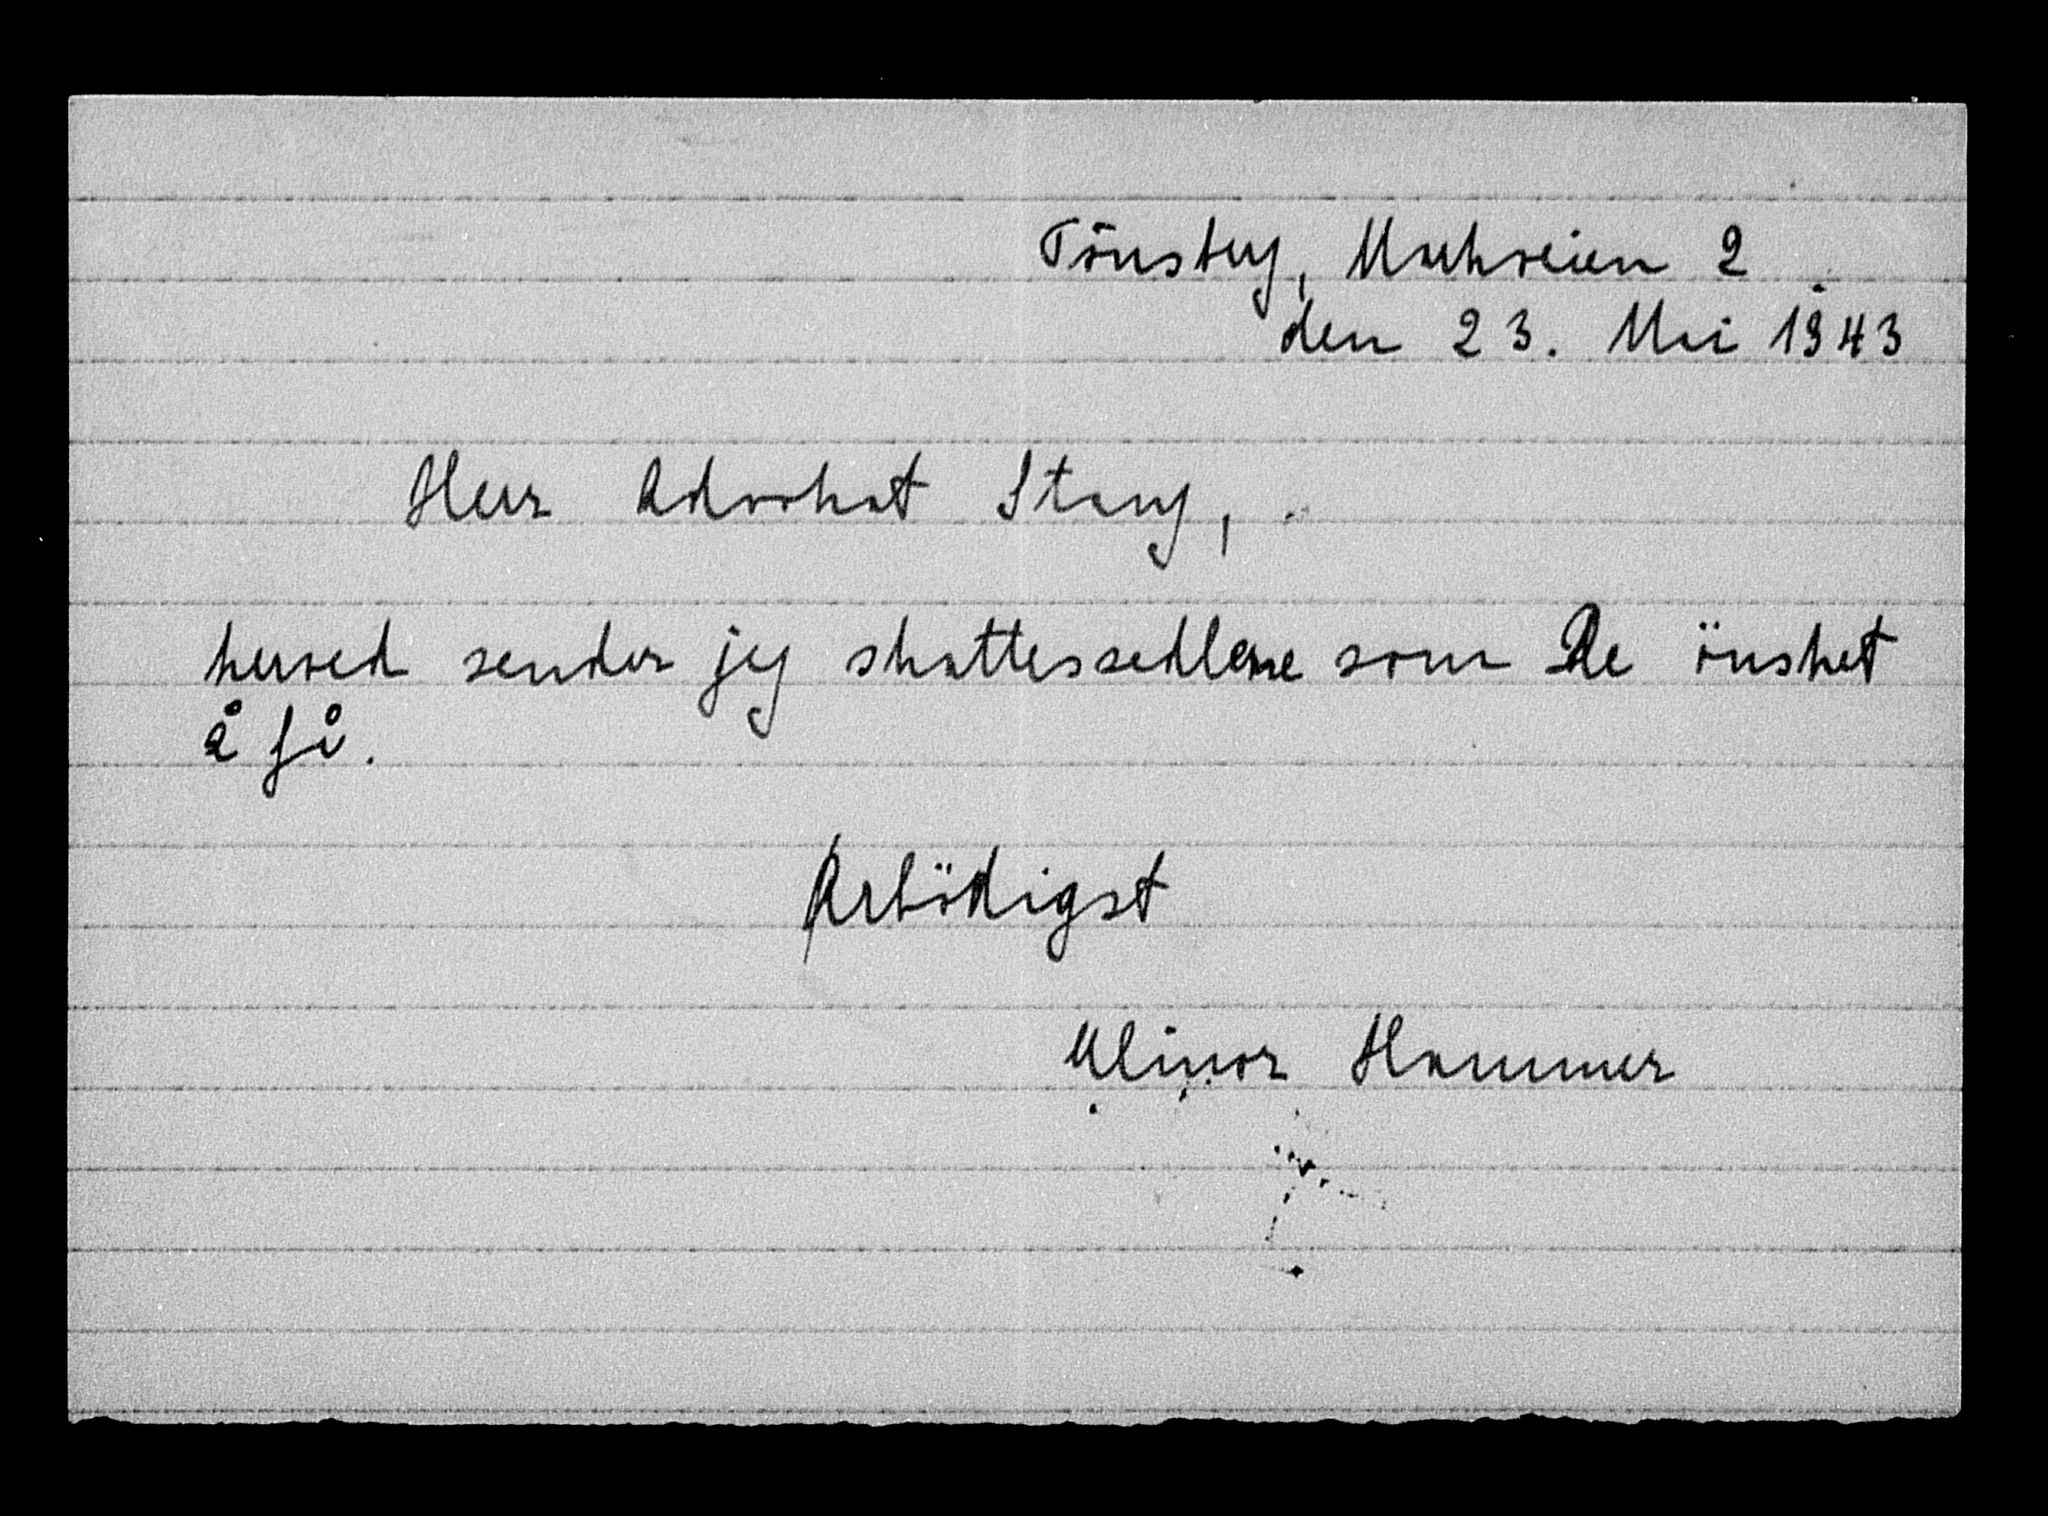 Tönsberg, Markveien 2
den 23. Mai 1943
Herr Advokat Stang,
herved sender jeg skattessedlene som De önsket
å få.
Arbödigst
Elinor Hammer